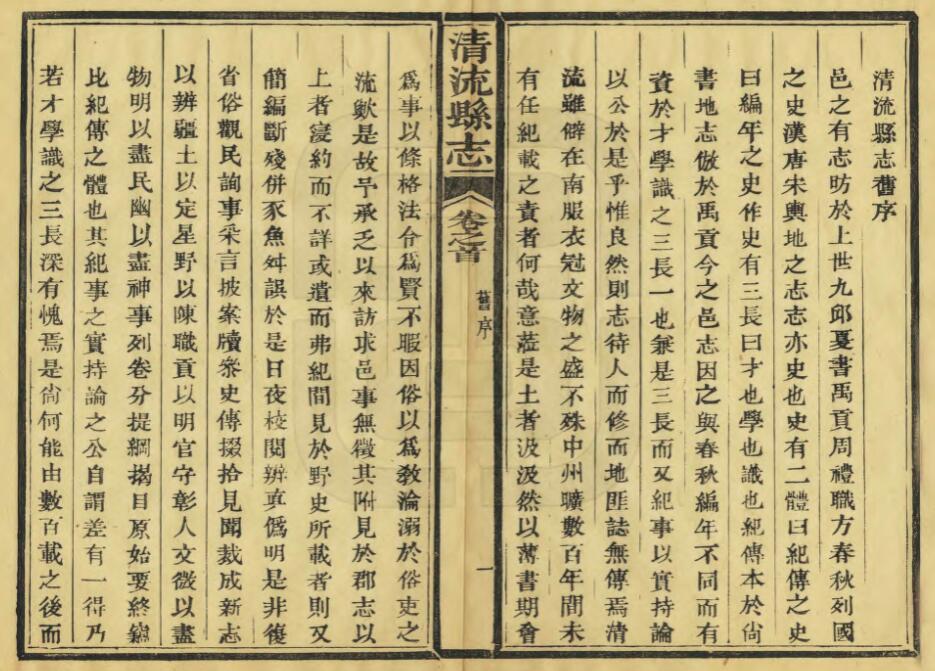 清流縣志舊序
邑之有志昉於上世九邱夏書禹貢周禮職方春秋列國
之史漢唐宋輿地之志志亦史也史有二體曰紀傳之史
曰編年之史作史有三長曰才也學也識也紀傳本於尙
書地志倣於禹貢今之邑志因之與春秋編年不同而有
資於才學識之三長一也兼是三長而又紀事以實持論
以公於是乎惟良然則志待人而修而地匪誌無傳焉清
流雖僻在南服衣冠文物之盛不殊中州曠數百年間未
有任紀載之責者何哉意蒞是土者汲汲然以薄書期會
清流縣志
卷之首
舊序
一
爲事以條格法令爲賢不暇因俗以爲教淪溺於俗吏之
流歟是故予承乏以來訪求邑事無徵其附見於郡志以
上者寖約而不詳或遺而弗紀間見於野史所載者則又
簡編斷殘併豕魚舛誤於是日夜校閱辨眞僞明是非復
省俗觀民詢事采言披案牘叅史傳掇拾見聞裁成新志
以辨疆土以定星野以陳職貢以明官守彰人文微以盡
物明以盡民幽以盡神事列卷分提綱揭目原始要終總
比紀傳之體也其紀事之實持論之公自謂差有一得乃
若才學識之三長深有愧焉是尙何能由數百載之後而